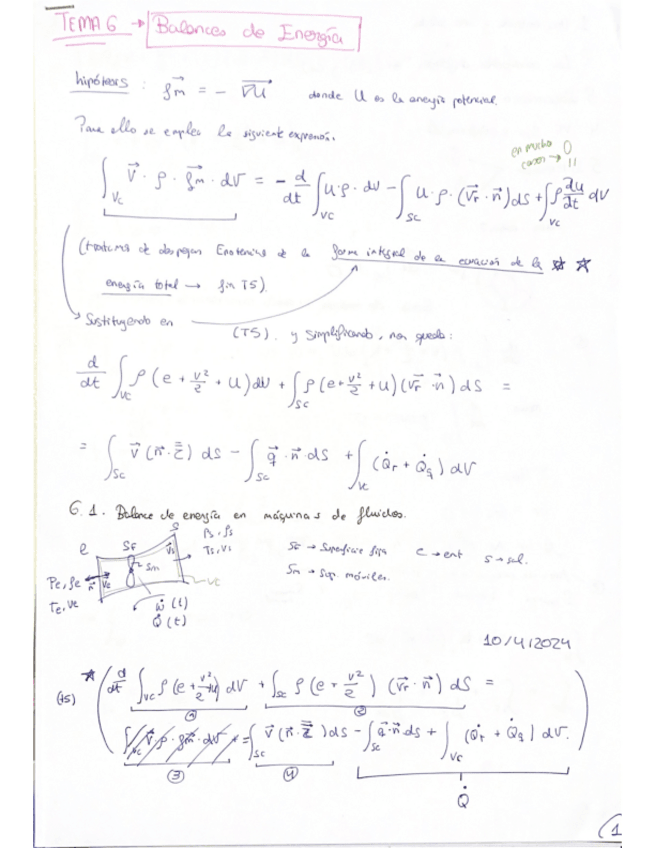 TEMA 6 → Balances de Energía
hipótesis : f⃗m = - ∇U donde U es la energía potencial.
Para ello se emplea la siguiente expresión.
en muchos casos → 0
∫VC v⃗ · ρ · f⃗m · dV = - d/dt ∫VC U · ρ · dV - ∫SC U · ρ · (v⃗r · n⃗) dS + ∫VC ρ dU/dt dV
de la forma integral de la ecuación de la ☆ ☆
energía total → fin T5).
Sustituyendo en (T5). y simplificando, nos queda:
d/dt ∫VC ρ (e + v²/2 + U) dV + ∫SC ρ (e + v²/2 + U) (v⃗r · n⃗) dS =
= ∫SC v⃗ (n⃗ · τ̿) dS - ∫SC q⃗ · n⃗ · dS + ∫VC (Q̇r + Q̇q) dV
6.1. Balance de energía en máquinas de fluidos.
e Sf Sm s Ps, ρs
Ts, vs
v⃗s
Pe, ρe n⃗ v⃗e
Te, ve
VC
Ẇ (t)
Q̇ (t)
Sf → Superficie fija e → ent s → sal.
Sm → Sup. móviles.
10/4/2024
☆ (T5) ( d/dt ∫VC ρ (e + v²/2 + U) dV + ∫SC ρ (e + v²/2) (v⃗r · n⃗) dS =
① ②
∫VC v⃗ ρ · f⃗m · dV + = ∫SC v⃗ (n⃗ · τ̿) dS - ∫SC q⃗ · n⃗ dS + ∫VC (Q̇r + Q̇q) dV. )
③ ④ Q̇
(1